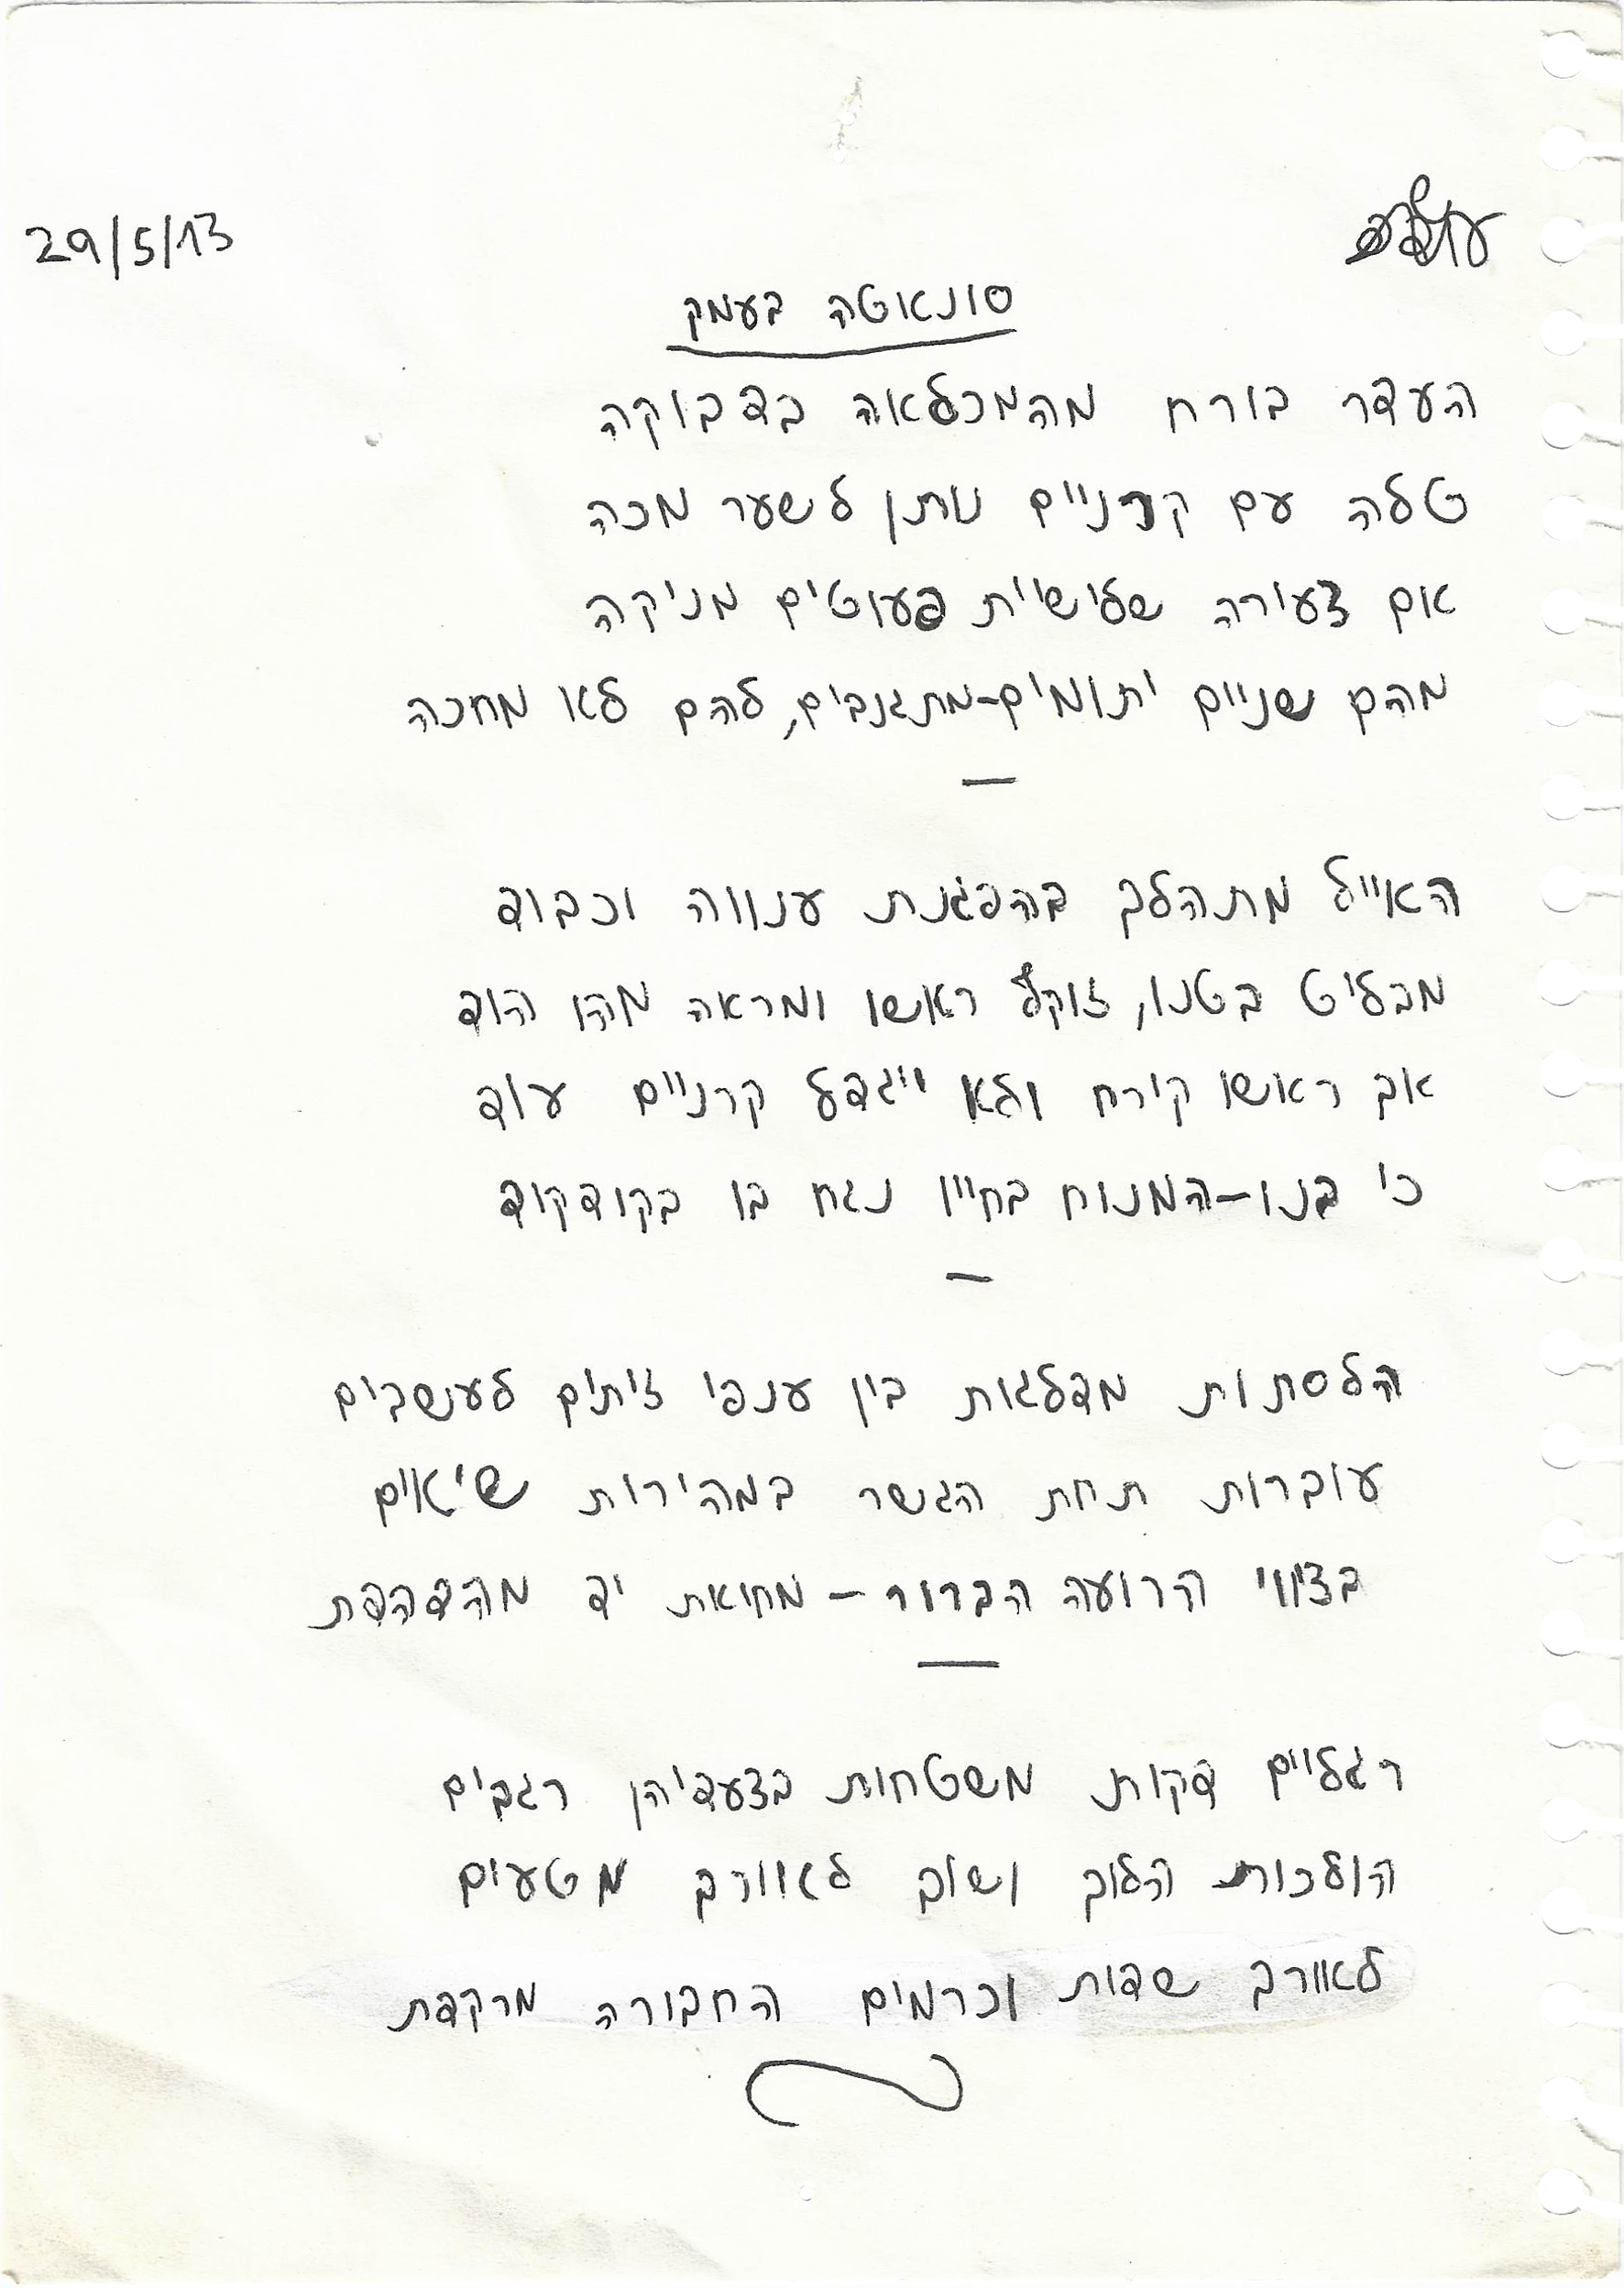 29/5/13
סונאטה בעמק
העדר בורח מהמכלאה בדבוקה
טלה עם קרניים נותן לשער מכה
אם צעירה שלישיית פעוטים מניקה
מהם שניים יתומים-מתגנבים, להם לא מחכה
—
האייל מתהלך בהפגנת ענווה וכבוד
מבליט בטנו, זוקף ראשו ומראה מהו הוד
אך ראשו קירח ולא ייגדל קרניים עוד
כי בנו-המנוח בחייו נגח בו בקודקוד
—
הלסתות מדלגות בין ענפי זיתים לעשבים
עוברות תחת הגשר במהירות שיאים
בציווי הרועה הברור - מחיאת יד מהדהדת
—
רגליים דקות משטחות בצעדיהן רגבים
הולכות הלוך ושוב לאורך מטעים
לאורך שדות וכרמים החבורה מרקדת